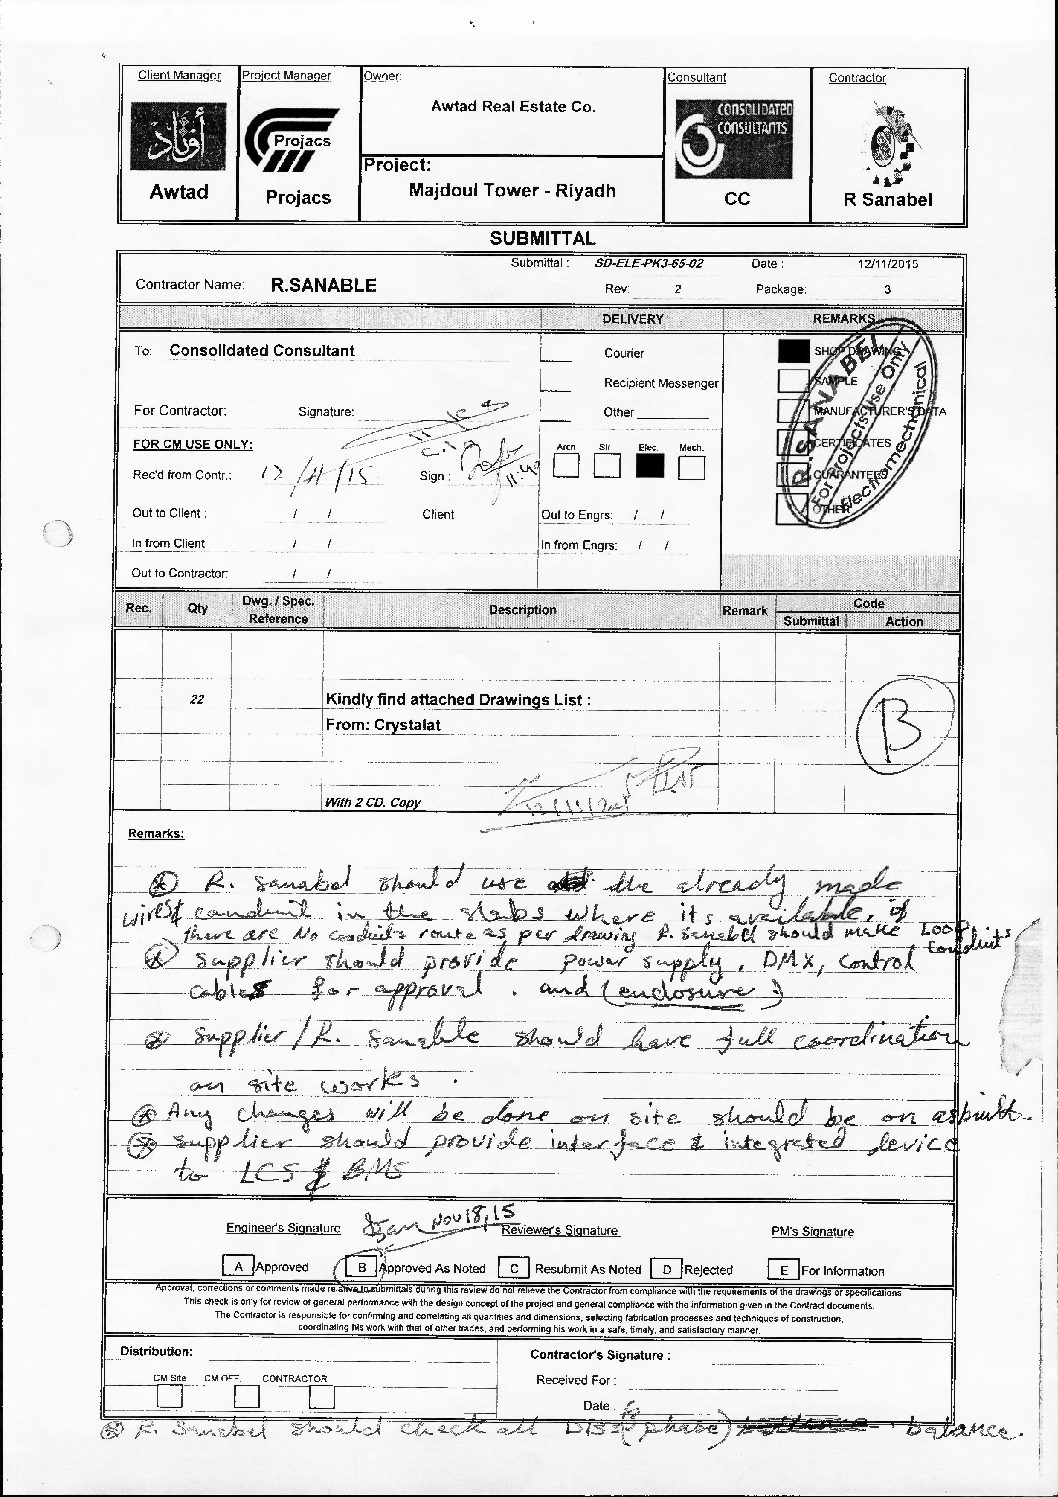 Client Manager Project Manager Owner: Consultant Contractor
Awtad Real Estate Co.
أوتاد
Projacs
CONSOLIDATED
CONSULTANTS
Project:
Majdoul Tower - Riyadh
Awtad Projacs CC R Sanabel
SUBMITTAL
Submittal : SD-ELE-PK3-65-02 Date : 12/11/2015
Contractor Name: R.SANABLE Rev: 2 Package: 3
DELIVERY REMARKS
To: Consolidated Consultant Courier SHOP DRAWINGS
Recipient Messenger SAMPLE
For Contractor: Signature: Other MANUFACTURER'S DATA
FOR CM USE ONLY: Arch Str Elec. Mech. CERTIFICATES
Rec'd from Contr.: 12/11/15 Sign : GUARANTEES
Out to Client : / / Client Out to Engrs: / / OTHER
In from Client / / In from Engrs: / /
Out to Contractor: / /
R. SANABEL
For Projects Use Only
Electromechanical
Rec. Qty Dwg. / Spec. Reference Description Remark Code
Submittal Action
22 Kindly find attached Drawings List :
From: Crystalat
B
With 2 CD. Copy
Remarks:
R. Sanabel should use the already made
wires & conduit in the slabs where its available, if
there are No conduits route as per drawing R. Sanabel should make Loop Conduits
Supplier should provide power supply, DMX, Control
cables for approval. and (enclosure)
Supplier / R. Sanable should have full coordination
on site works.
Any changes will be done on site should be on asbuilt.
Supplier should provide interface & integrated device
to LCS & BMS
Engineer's Signature Nov 18, 15 Reviewer's Signature PM's Signature
A Approved B Approved As Noted C Resubmit As Noted D Rejected E For Information
Approval, corrections or comments made relative to submittals during this review do not relieve the Contractor from compliance with the requirements of the drawings or specifications.
This check is only for review of general performance with the design concept of the project and general compliance with the information given in the Contract documents.
The Contractor is responsible for confirming and correlating all quantities and dimensions, selecting fabrication processes and techniques of construction,
coordinating his work with that of other trades, and performing his work in a safe, timely, and satisfactory manner.
Distribution: Contractor's Signature :
CM Site CM OFF. CONTRACTOR Received For :
Date :
R. Sanabel should check all (phase) balance.